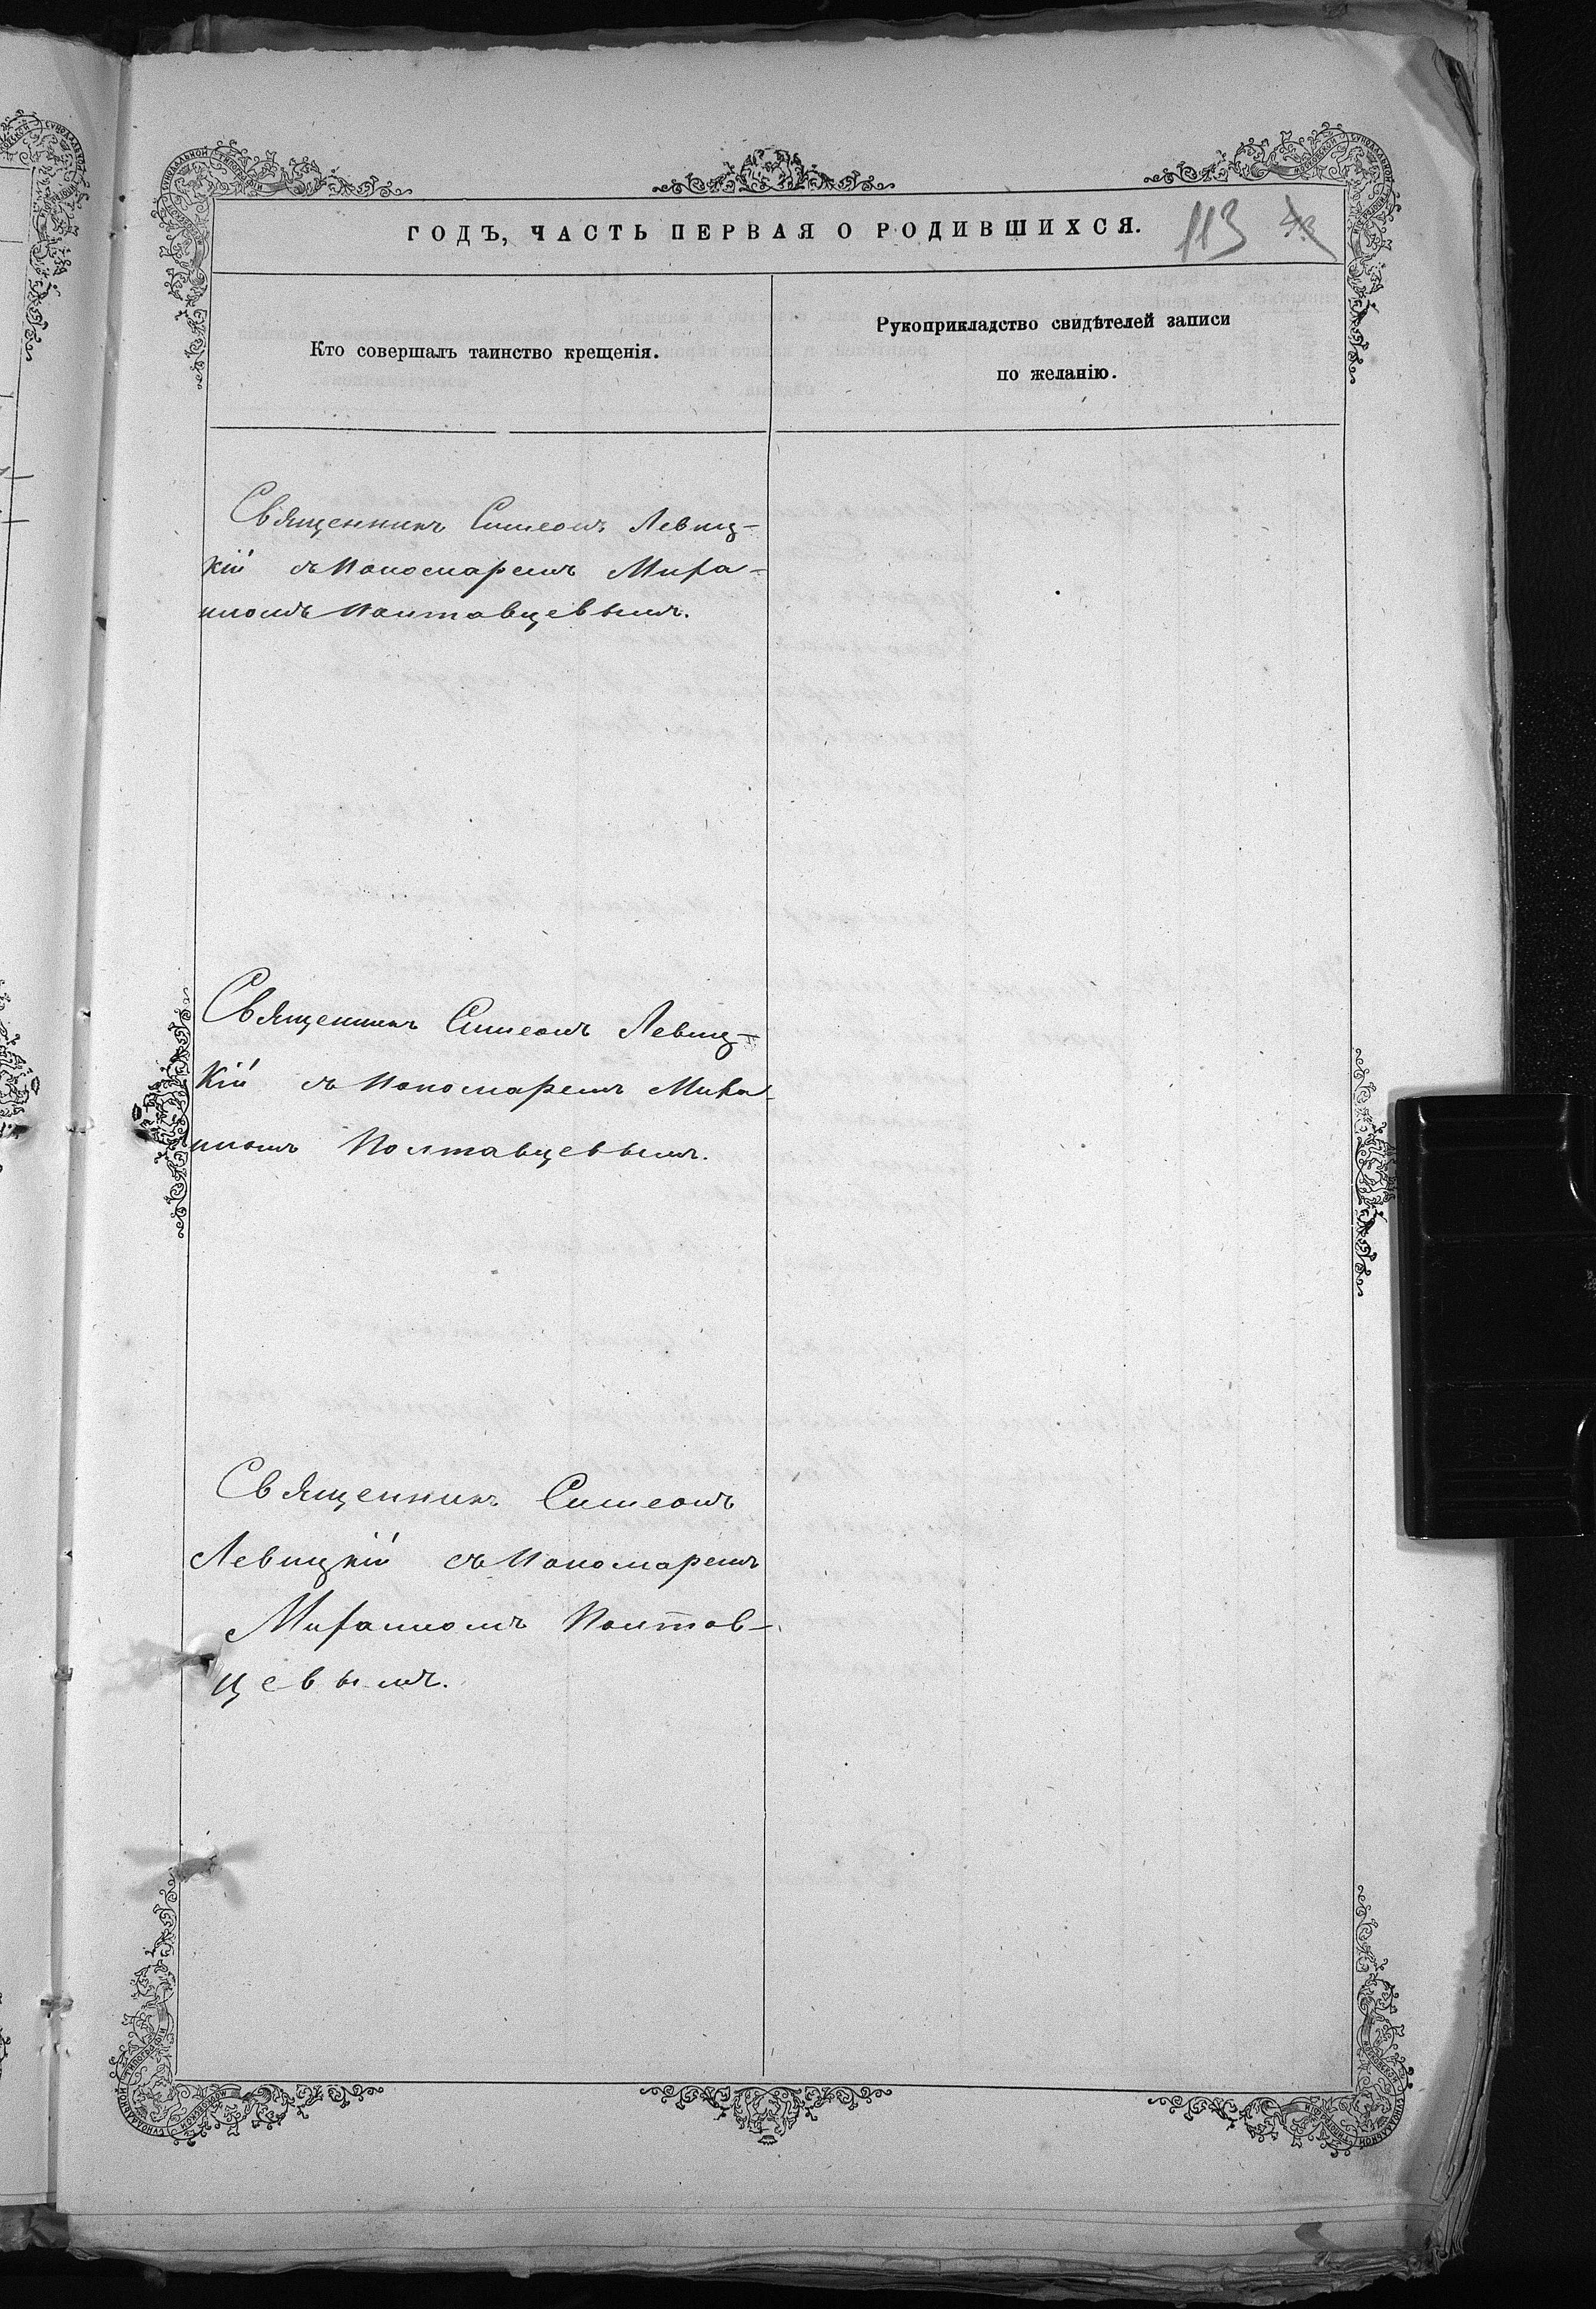 ГОДЪ, ЧАСТЬ ПЕРВАЯ О РОДИВШИХСЯ.
113
Кто совершалъ таинство крещенія.
Рукоприкладство свидѣтелей записи
по желанію.
Священникъ Симеонъ Левиц-
кій съ Пономаремъ Мира-
номъ Полтавцевымъ.
Священникъ Симеонъ Левиц-
кій съ Пономаремъ Мира-
номъ Полтавцевымъ.
Священникъ Симеонъ
Левицкій съ Пономаремъ
Полтав-
цевымъ.